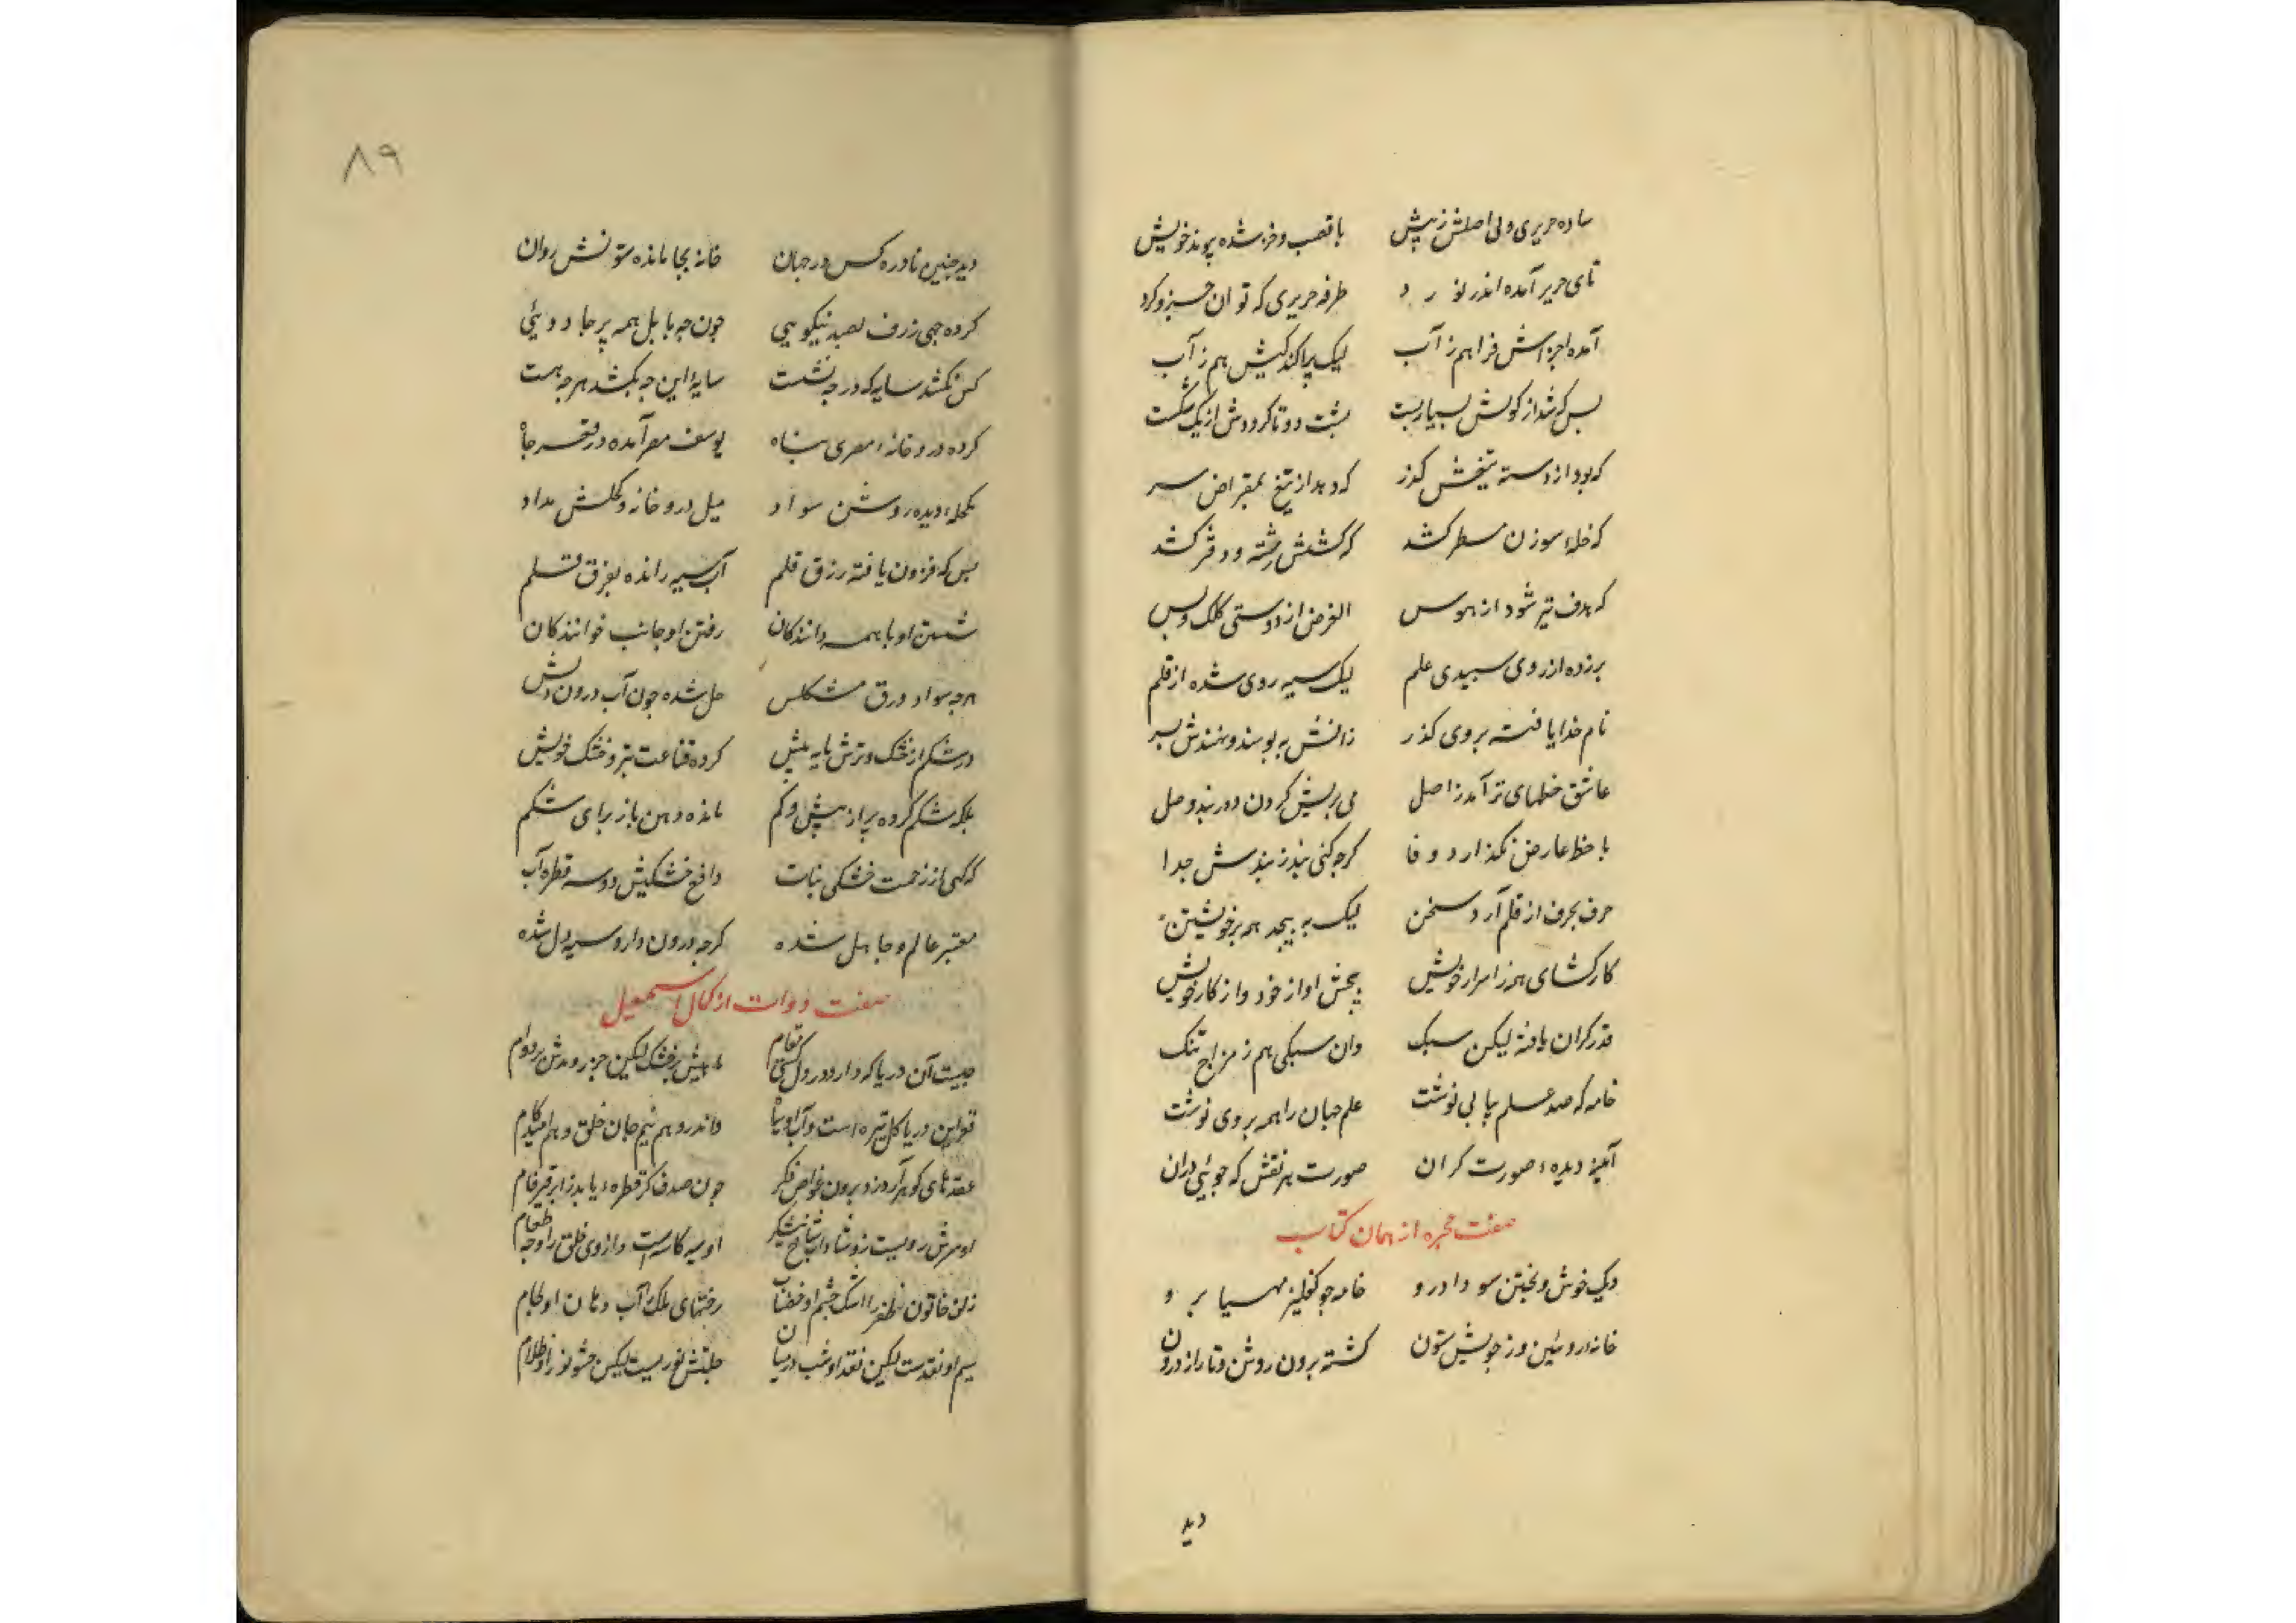 ساده حریری ولی اصلش ز پیش با قصب و خز شده پیوند خویش
تای حریر آمده اندر نورد طرفه حریری که توان جزو کرد
آمده اجزاش فراهم ز آب لیک پراکندگیش هم ز آب
بس که شد از کوبش بسیار پست پشت دو تا کردش از یک شکست
که بود از دسته تیغش گذر که دهد از تیغ بمقراض سر
که خلهٔ سوزن مسطر کشد که کشش رشته دفتر کشد
که هدف تیر شود از هوس الغرض از دوستی کلک و بس
برزده از روی سپیدی علم لیک سیه روی شده از قلم
نام خدا یافته بروی گذر زانش ببوسند و نهندش بسر
عاشق خطهای تر آمد ز اصل می بریش گردن و در بند وصل
با خط عارض نگذارد وفا گرچه کنی بند ز بندش جدا
حرف بحرف از قلم آرد سخن لیک به پیچد همه بر خویشتن
کارگشای هنر اسرار خویش پیچش او از خود و از کار خویش
قدر گران یافته لیکن سبک وان سبکی هم ز مزاج تنک
خامه که صد علم بیابی نوشت علم جهان را همه بروی نوشت
آینهٔ دیدهٔ صورت گران صورت هر نقش که جوئی دران
صفت محبره از همان کتاب
دیک خوش و پختن سودا درو خامه چو کفلیز مهیا برو
خانه روئین و ز چوبش ستون گشته برون روشن و تار از درون
دید
۸۹
دید چنین نادره کس در جهان خانه بجا مانده ستونش روان
کرده چهی ژرف بصد نیکویی چون چه بابل همه پر جادویئی
کس نکشد سایه که در چه نشست سایهٔ این چه بکشد هر چه هست
کرده در و خانهٔ مصری پناه یوسف مصر آمده در قعر چاه
مکحلهٔ دیدهٔ روشن سواد میل درو خانه و کحلش مداد
بس که فزون یافته رزق قلم آب سیه رانده بفرق قلم
شستن او با همه دانندگان رفتن او جانب خوانندگان
هر چه سواد ورق مشکلش حل شده چون آب درون دلش
در شکم از خشک و ترش مایه بیش کرده قناعت بتر و خشک خویش
بلکه شکم کرده پر از بیش و کم مانده دهن باز برای شکم
که گهی از زحمت خشکی بتاب دافع خشکیش دو سه قطره آب
معتبر عالم و جاهل شده گرچه درون دار و سیه دل شده
صفت دوات از کمال اسمعیل
چیست آن دریا که دارد در دل کشتی مقام کشتیش بر خشک لیکن جزر و مدش بر دوام
قعر این دریا گل تیره است و آب او سیاه واندرو هم بیم جان خلق و هم امید کام
عقدهای گوهر آرد زو برون غواص فکر چون صدف گر قطرهٔ یابد ز ابر قیرفام
او سیه کاسه است و از وی خلق را وجه طعام
زلف خاتون ظفر را اشک چشم او خضاب رخشهای ملک را آب دهان او لجام
سیم او نقدست لیکن نقد او شب در میان جلبتش نوریست لیکن حشو نور او ظلام